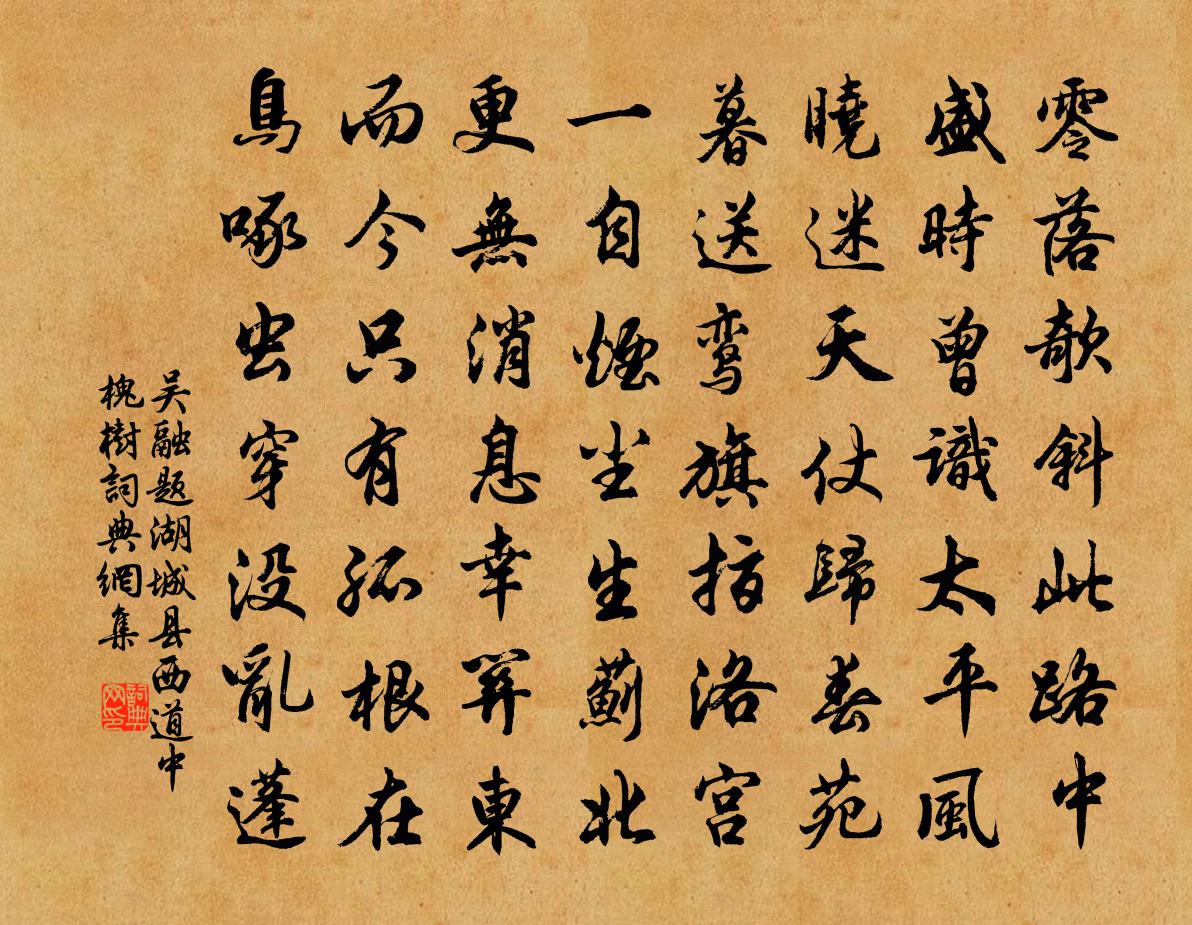 零落欹斜此路中
盛時曾識太平風
曉迷天仗歸春苑
暮送鸞旗指洛宮
一自煙尘生薊北
更無消息幸關東
而今只有孤根在
鳥啄虫穿没亂蓬
吴融题湖城县西道中
槐樹詞典網集
詞典
网印